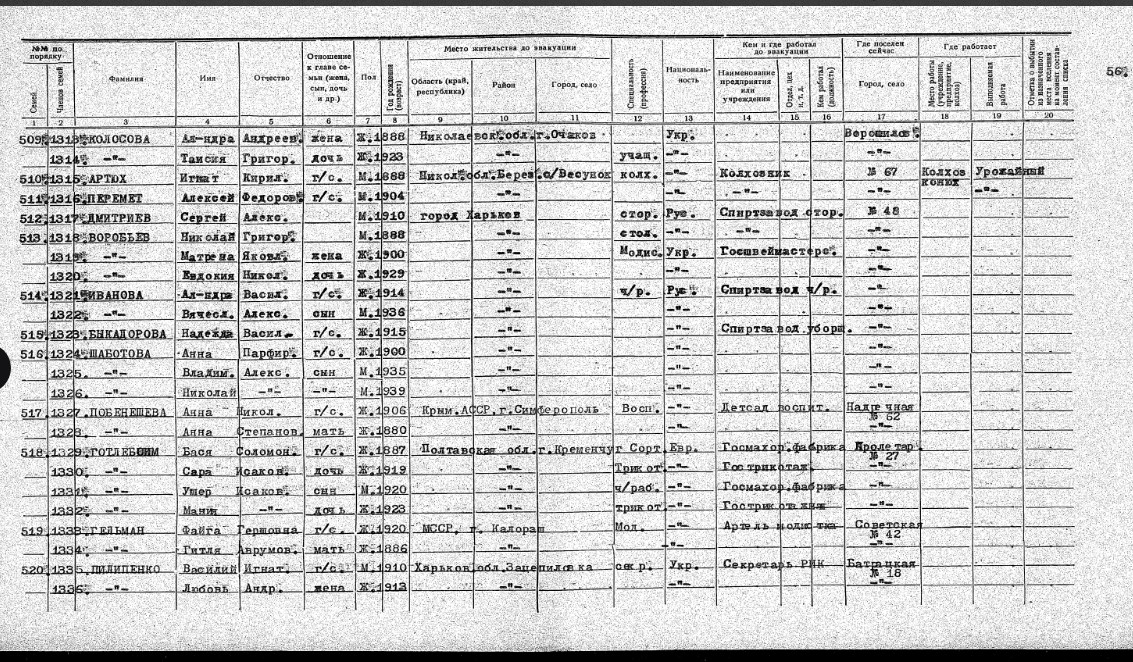 №№ по порядку
Семей
Членов семей
Фамилия
Имя
Отчество
Отношение к главе семьи (жена, сын, дочь и др.)
Пол
Год рождения (возраст)
Место жительства до эвакуации
Область (край, республика)
Район
Город, село
Специальность (профессия)
Националь-ность
Кем и где работал до эвакуации
Наименование предприятия или учреждения
Отдел, цех и т. д.
Кем работал (должность)
Где поселен сейчас
Город, село
Где работает
Место работы (учреждение, предприятие, колхоз)
Выполняемая работа
Отметка о выбытии из назначенного места вселения на момент составления списка
56.
1 2 3 4 5 6 7 8 9 10 11 12 13 14 15 16 17 18 19 20
509. 1313. КОЛОСОВА Ал-ндра Андреев. жена Ж. 1888 Николаевск. обл. г. Очаков Укр. Ворошилов.
1314. -"- Таисия Григор. дочь Ж. 1923 -"- учащ. -"- -"-
510. 1315. АРТЮХ Игнат Кирил. г/с. М. 1888 Никол. обл. Берез. с/Весунок колх. -"- Колховник № 67 Колхоз Урожайный
конюх
511. 1316. ПЕРЕМЕТ Алексей Федоров. г/с. М. 1904 -"- -"- -"- -"- -"-
512. 1317. ДМИТРИЕВ Сергей Алекс. М. 1910 город Харьков стор. Рус. Спиртзавод стор. № 48
513. 1318. ВОРОБЬЕВ Николай Григор. М. 1888 -"- стол. -"- -"- -"-
1319. -"- Матрена Яковл. жена Ж. 1900 -"- Модис. Укр. Госшвеймастерс. -"-
1320. -"- Евдокия Никол. дочь Ж. 1929 -"- -"- -"-
514. 1321. ИВАНОВА Ал-ндра Васил. г/с. Ж. 1914 -"- ч/р. Рус. Спиртзавод ч/р. -"-
1322. -"- Вячесл. Алекс. сын М. 1936 -"- -"- -"-
515. 1323. БЫКАДОРОВА Надежда Васил. г/с. Ж. 1915 -"- -"- Спиртзавод уборщ. -"-
516. 1324. ШАБОТОВА Анна Парфир. г/с. Ж. 1900 -"- -"- -"-
1325. -"- Владим. Алекс. сын М. 1935 -"- -"- -"-
1326. -"- Николай -"- -"- М. 1939 -"- -"- -"-
517. 1327. ПОБЕНЕШЕВА Анна Никол. г/с. Ж. 1906 Крым. АССР. г. Симферополь Восп. -"- Детсад воспит. Надречная
№ 62
1328. -"- Анна Степанов. мать Ж. 1880 -"- -"- -"-
518. 1329. ГОТЛЕБОИМ Бася Соломон. г/с. Ж. 1887 Полтавская обл. г. Кременчуг Сорт. Евр. Госмахор. фабрика Пролетар.
№ 27
1330. -"- Сара Исаков. дочь Ж. 1919 -"- Трикот. -"- Гострикотаж. -"-
1331. -"- Ушер Исаков. сын М. 1920 -"- ч/раб. -"- Госмахор. фабрика -"-
1332. -"- Мания -"- дочь Ж. 1923 -"- трикот. -"- Гострикотаж -"-
519. 1333. ГЕЛЬМАН Файга Гершовна г/с. Ж. 1920 МССР, г. Калораш Мод. -"- Артель модистка Советская
№ 42
1334. -"- Гитля Аврумов. мать Ж. 1886 -"- -"- -"-
520. 1335. ПИЛИПЕНКО Василий Игнат. г/с. М. 1910 Харьков. обл. Зацепиловка секр. Укр. Секретарь РИК Батрацкая
№ 18
1336. -"- Любовь Андр. жена Ж. 1913 -"- -"- -"-